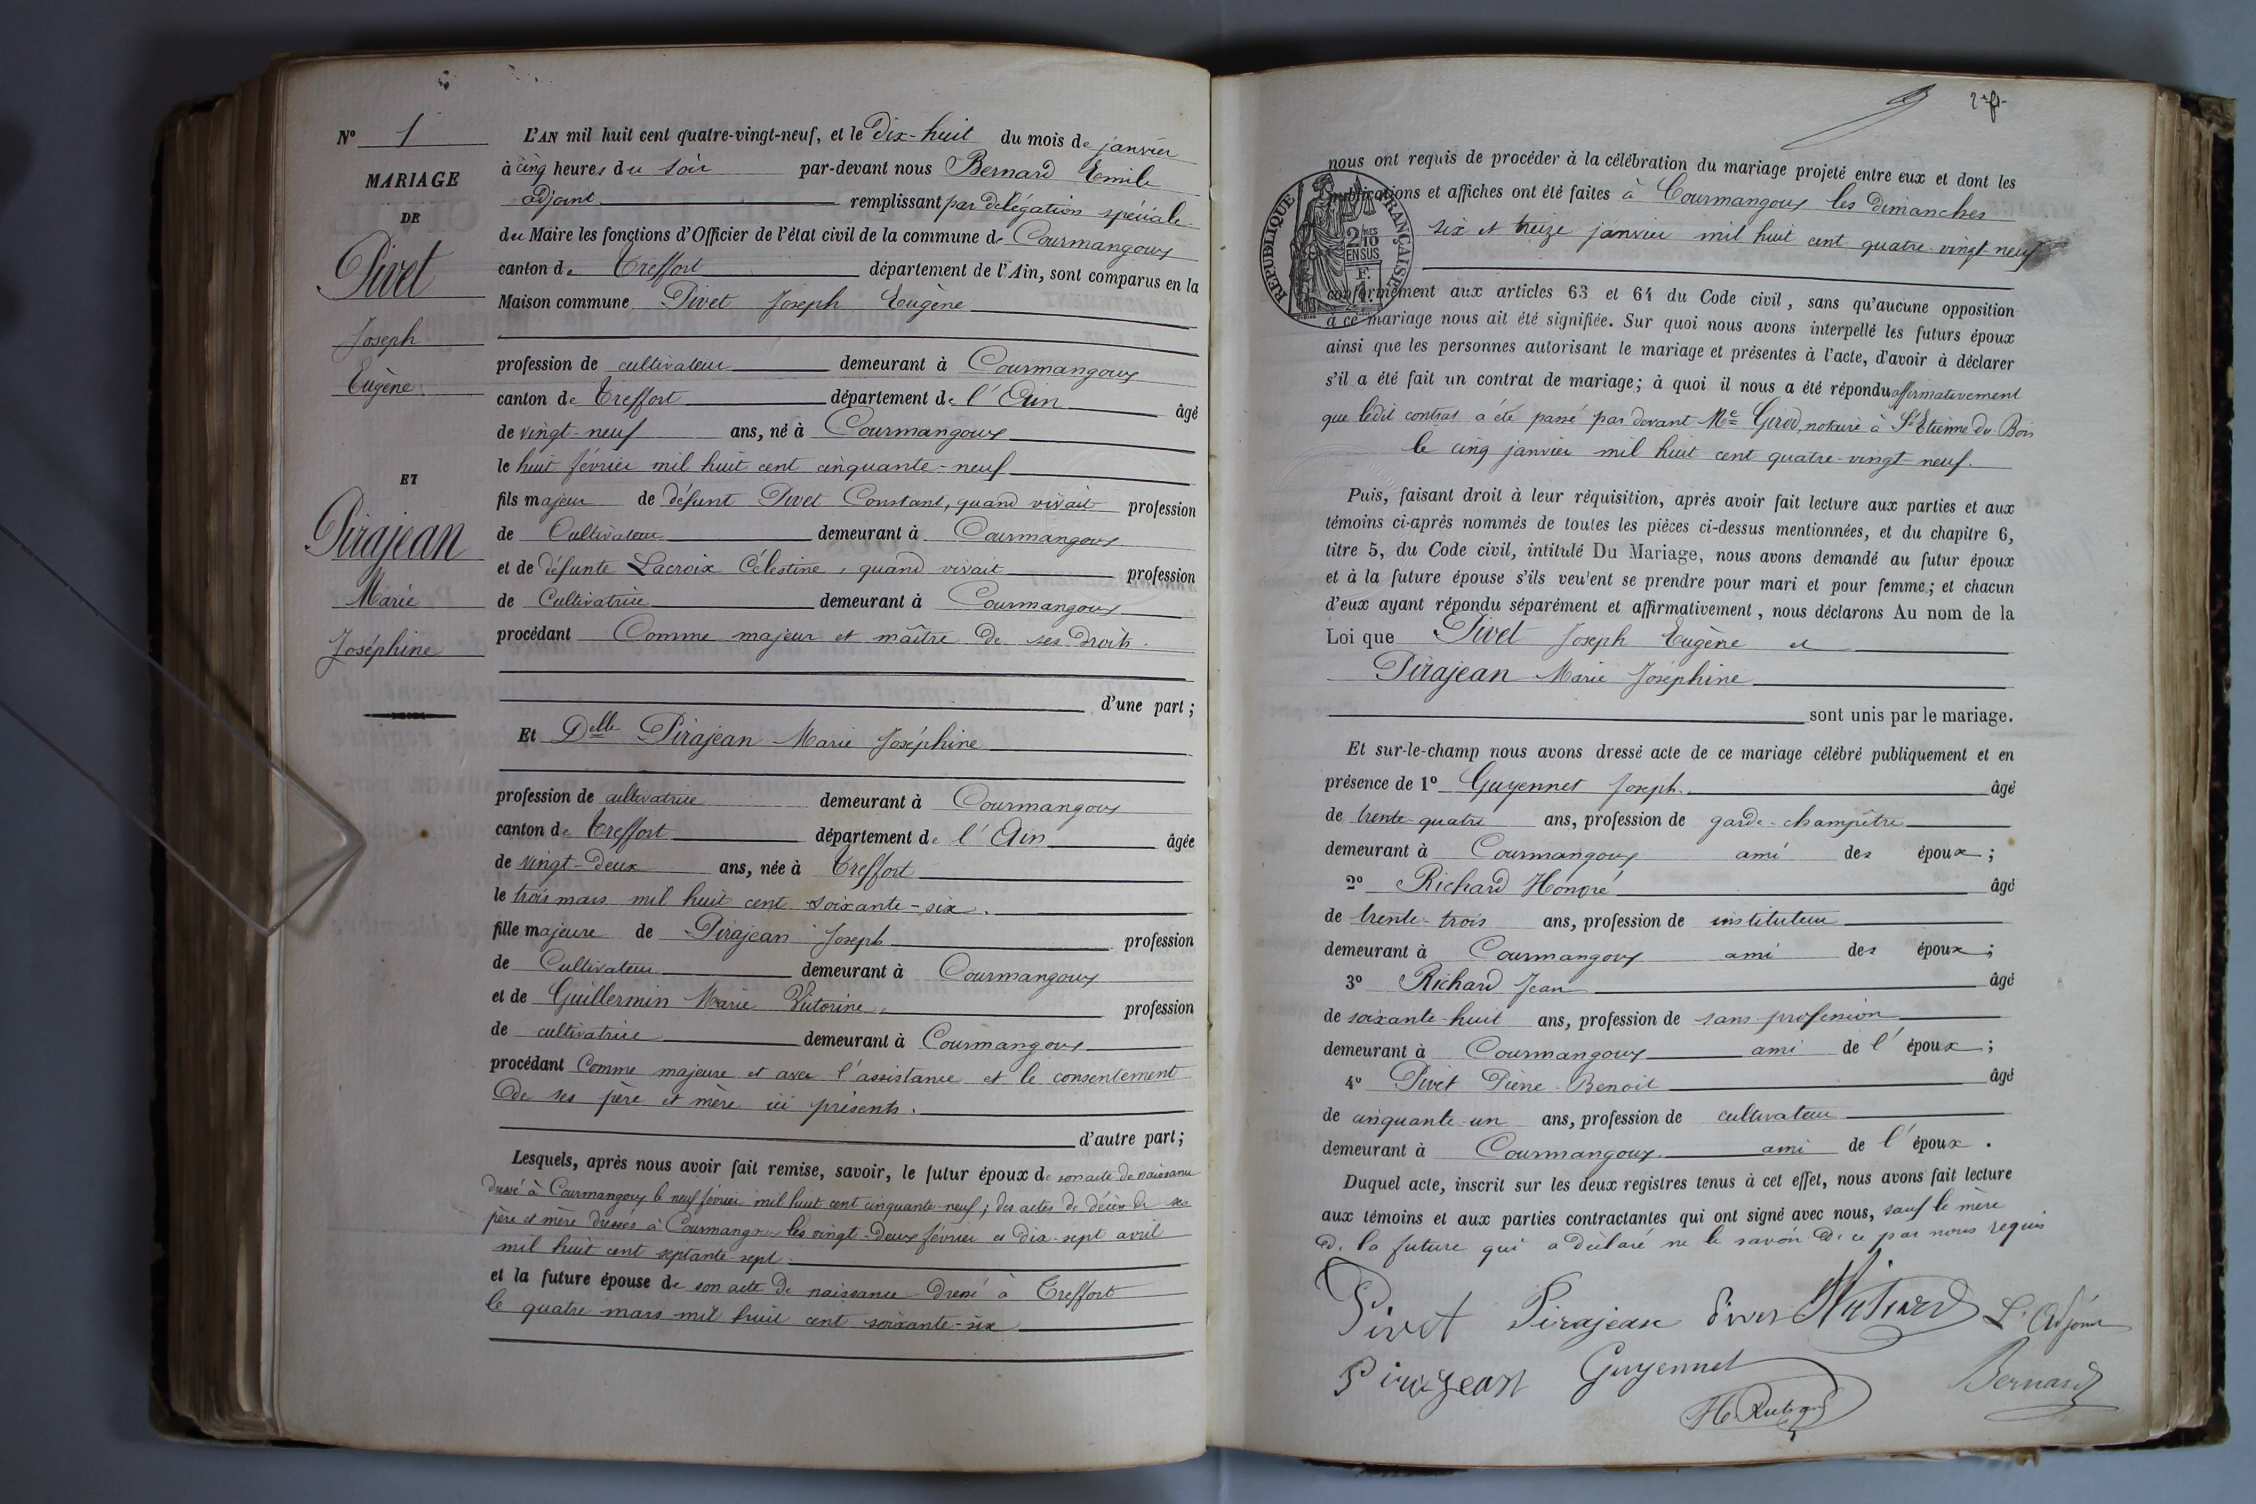 N° 1
MARIAGE
DE
Pivet
Joseph
Eugène
ET
Pirajean
Marie
Joséphine
L'AN mil huit cent quatre-vingt-neuf, et le dix-huit du mois de janvier
à cinq heures du soir par-devant nous Bernard Emile
adjoint remplissant par délégation spéciale
du Maire les fonctions d'Officier de l'état civil de la commune de Courmangoux
canton de Treffort département de l'Ain, sont comparus en la
Maison commune Pivet Joseph Eugène
profession de cultivateur demeurant à Courmangoux
canton de Treffort département de l'Ain âgé
de vingt-neuf ans, né à Courmangoux
le huit février mil huit cent cinquante-neuf
fils majeur de défunt Pivet Constant, quand vivait profession
de Cultivateur demeurant à Courmangoux
et de défunte Lacroix Célestine, quand vivait profession
de Cultivatrice demeurant à Courmangoux
procédant Comme majeur et maître de ses droits.
d'une part ;
Et Delle Pirajean Marie Joséphine
profession de cultivatrice demeurant à Courmangoux
canton de Treffort département de l'Ain âgée
de vingt-deux ans, née à Treffort
le trois mars mil huit cent soixante-six.
fille majeure de Pirajean Joseph profession
de Cultivateur demeurant à Courmangoux
et de Guillermin Marie Victorine, profession
de cultivatrice demeurant à Courmangoux
procédant Comme majeure et avec l'assistance et le consentement
de ses père et mère ici présents.
d'autre part ;
Lesquels, après nous avoir fait remise, savoir, le futur époux de son acte de naissance
dressé à Courmangoux le neuf février mil huit cent cinquante-neuf ; des actes de décès de ses
père et mère dressés à Courmangoux les vingt-deux février et dix-sept avril
mil huit cent septante-sept.
et la future épouse de son acte de naissance dressé à Treffort
le quatre mars mil huit cent soixante-six
nous ont requis de procéder à la célébration du mariage projeté entre eux et dont les
publications et affiches ont été faites à Courmangoux les dimanches
six et treize janvier mil huit cent quatre-vingt neuf
RÉPUBLIQUE FRANÇAISE
2/10
EN SUS
conformément aux articles 63 et 64 du Code civil, sans qu'aucune opposition
à ce mariage nous ait été signifiée. Sur quoi nous avons interpellé les futurs époux
ainsi que les personnes autorisant le mariage et présentes à l'acte, d'avoir à déclarer
s'il a été fait un contrat de mariage ; à quoi il nous a été répondu affirmativement
que ledit contrat a été passé par devant Me Gerod, notaire à St Etienne du Bois
le cinq janvier mil huit cent quatre-vingt-neuf.
Puis, faisant droit à leur réquisition, après avoir fait lecture aux parties et aux
témoins ci-après nommés de toutes les pièces ci-dessus mentionnées, et du chapitre 6,
titre 5, du Code civil, intitulé Du Mariage, nous avons demandé au futur époux
et à la future épouse s'ils veulent se prendre pour mari et pour femme ; et chacun
d'eux ayant répondu séparément et affirmativement, nous déclarons Au nom de la
Loi que Pivet Joseph Eugène et
Pirajean Marie Joséphine
sont unis par le mariage.
Et sur-le-champ nous avons dressé acte de ce mariage célébré publiquement et en
présence de 1° Guyennet Joseph. âgé
de trente-quatre ans, profession de garde-champêtre
demeurant à Courmangoux ami des époux ;
2° Richard Honoré âgé
de trente-trois ans, profession de instituteur
demeurant à Courmangoux ami des époux ;
3° Richard Jean âgé
de soixante-huit ans, profession de sans profession
demeurant à Courmangoux ami de l'époux ;
4° Pivet Pierre-Benoit âgé
de cinquante-un ans, profession de cultivateur
demeurant à Courmangoux ami de l'époux.
Duquel acte, inscrit sur les deux registres tenus à cet effet, nous avons fait lecture
aux témoins et aux parties contractantes qui ont signé avec nous, sauf la mère
de la future qui a déclaré ne le savoir de ce par nous requis
Pivet Pirajean Pivet Richard L'Adjoint
Pirajean Guyennet Bernard